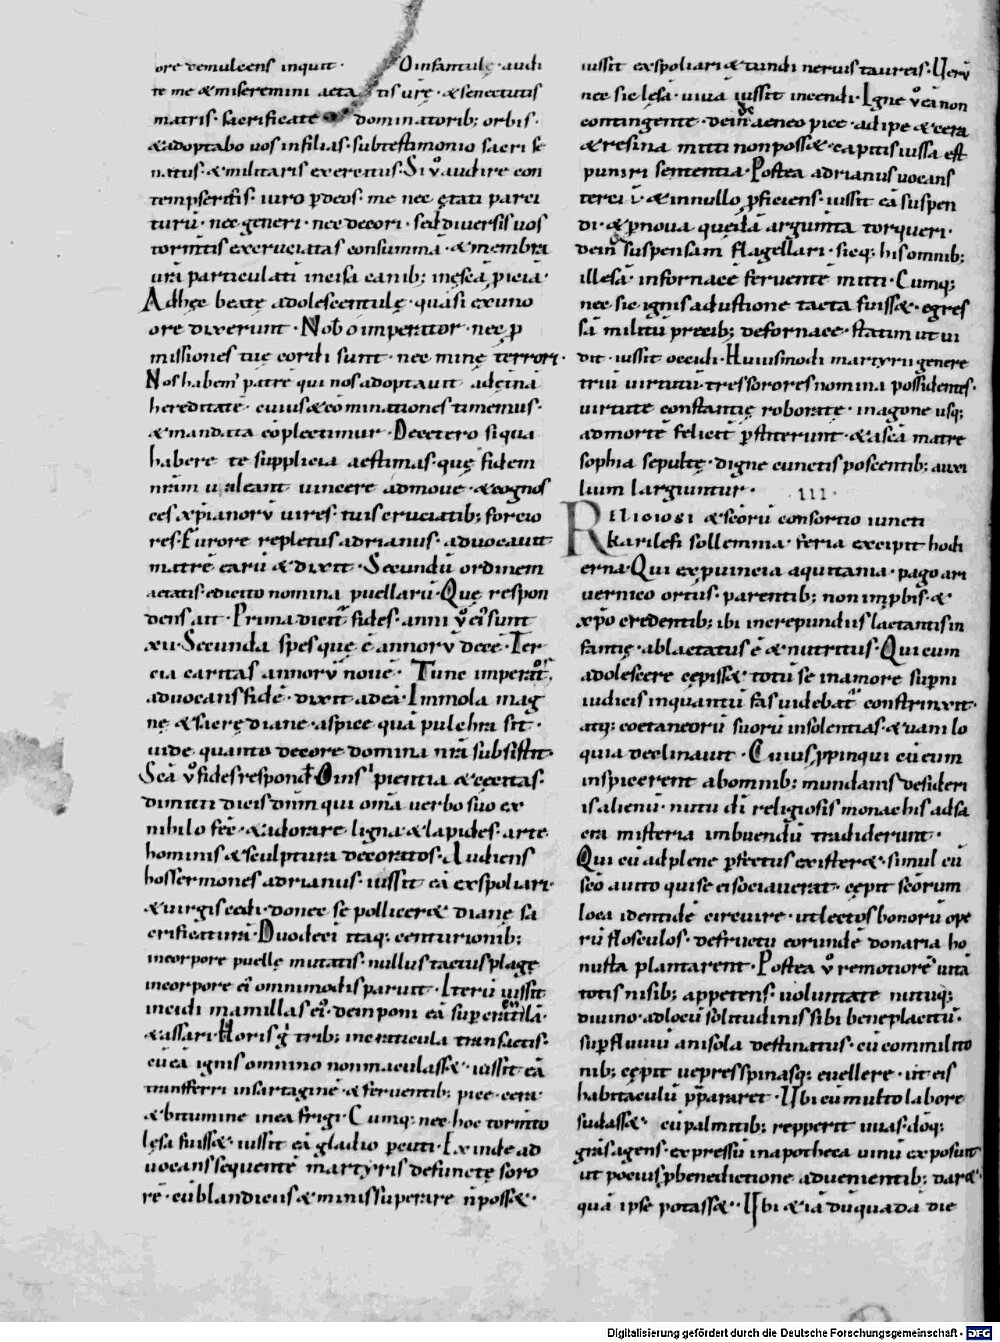 ore demulcens inquit · O infantulę · audi
te me & miseremini aeta tis urę · & senectutis
matris · sacrificate dominatorib; orbis ·
& adoptabo uos in filias · sub testimonio sacri se
natus · & militaris exercitus · Si ů audire con
tempseritis · iuro p̱ deos · me nec ętati parci
turū · nec generi · nec decori · sed diuersis uos
tormtis excruciatas consummā · & membra
ura particulati incisa canib; in esca piciā ·
Ad hęc beatę adolescentulę · quasi ex uno
ore dixerunt · Nob o imperator · nec p̱
missiones tuę cordi sunt · nec minę terrori ·
Nos habem' patrē qui nos adoptauit ad cęna
hereditatē · cuius & cōminationes timemus ·
& mandata cōplectimur · De cetero si qua
habere te supplicia aestimas · quę fidem
nrām ualeant uincere admoue · & cognos
ces xpianorū uires · tuis cruciatib; forcio
res · Furore repletus adrianus · aduocauit
matrē earū & dixit · Secundū ordinem
aetatis · edicito nomina puellarū · Quę respon
dens ait · Prima dicit fides · anni ů ei' sunt
xii · Secunda spes quę ē annorū decē · Ter
cia caritas annorū nouē · Tunc imperat
aduocans fidē · dixit ad eā · Immola mag
nę & sacrę dianę · aspice quā pulchra sit ·
uide quanto decore domina nrā subsistit ·
Scā ů fides respond O insipientia & cęcitas ·
dimitti dicis dnm qui omā uerbo suo ex
nihilo fec · & adorare ligna & lapides · arte
hominis & sculptura decoratos · Audiens
hos sermones adrianus · iussit eā exspoliari ·
& uirgis cedi · donec se pollicer& dianę sa
crificaturā · Duodeci itaq; centurionib;
in corpore puellę mutatis · nullus tactus plagę
in corpore ei' omnimodis paruit · Iterū iussit
incidi mamillas ei' · dein poni eā super craticulā
& assari · Horis g trib; in craticula transactis ·
cū eā ignis omnino non maculass& · iussit eā
transferri in sartaginē & feruentib; pice · cera
& bitumine in ea frigi · Cumq; nec hoc tormto
lęsa fuiss& · iussit eā gladio pcuti · Exinde ad
uocans sequentē martyris defunctę soro
rē · cū blandiciis & minis superare ñ poss& ·
iussit exspoliari & tundi neruis taureis · Uerū
nec sic lęsā · uiuā iussit incendi · Igne ů eā non
contingente · dein de aeneo pice · adipe & cera
& resina mitti non poss& · capitis iussa est
puniri sententia · Postea adrianus uocans
terciā · & in nullo p̱ficiens · iussit eā suspen
di · & p̱ noua quędā argumta torqueri ·
dein suspensam flagellari · sicq; his omnib;
illesā in fornacē feruentē mitti · Cumq;
nec sic ignis adustione tacta fuiss& · egres
sā militū precib; de fornace · statim ut ui
dit · iussit occidi · Huiusmodi martyrii genere
triū uirtutū · tres sorores nomina possidentes ·
uirtute constantię roboratę · in agone usq;
ad mortē felicit p̱stiterunt · & a scā matre
sophia sepultę · digne cunctis poscentib; auxi
lium largiuntur ·
III ·
Religiosi & scōrū consortio iuncti
karilefi sollemma · feria excipit hodi
erna · Qui ex puincia aquitania · pago ar
uernico ortus · parentib; non imp̱bis · &
xpo credentib; ibi in crepundiis lactantis in
fantię · ablactatus ē & nutritus · Qui cum
adolescere cępiss& totū se in amore supni
iudicis in quantū fas uidebat constrinxit ·
atq; coetaneorū suorū insolentias & uani lo
quia declinauit · Cuius ppinqui cū eum
inspicerent ab omnib; mundanis desideri
is alienū · nutu di religiosis monachis ad sa
cra misteria imbuendū tradiderunt ·
Qui cū ad plenē p̱fectus exister& · simul cū
scō auito qui se ei sociauerat · cępit scōrum
loca identidē circuire · ut lectos bonorū ope
rū flosculos · de fructu eorundē donaria ho
nusta plantarent · Postea ů remotiorē uitā
totis nisib; appetens · uoluntate nutuq;
diuino · ad locū solitudinis sibi beneplacitū ·
sup fluuiū anisola destinatus · cū commilito
nib; cępit uepres spinasq; euellere · ut eis
habitaculū p̱pararet · Ubi cū multo labore
sudass& cū palmitib; repperit uuas · dōq;
grās agens · expressū in apotheca uinū exposuit
ut pocius p̱ benedictione aduenientib; dar&
quā ipse potass& · Ubi & iā dū quadā die
Digitalisierung gefördert durch die Deutsche Forschungsgemeinschaft - DFG